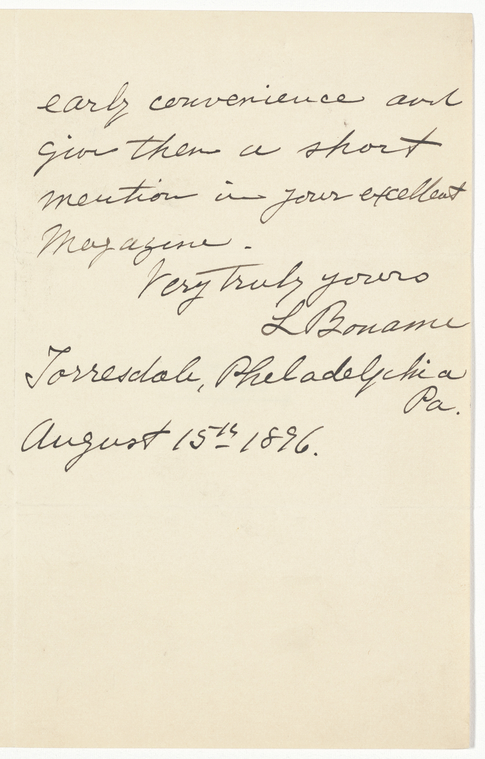 early convenience and
give them a short
mention in your excellent
Magazine.
Very truly yours
L Boname
Torresdale, Philadelphia
Pa.
August 15th 1896.